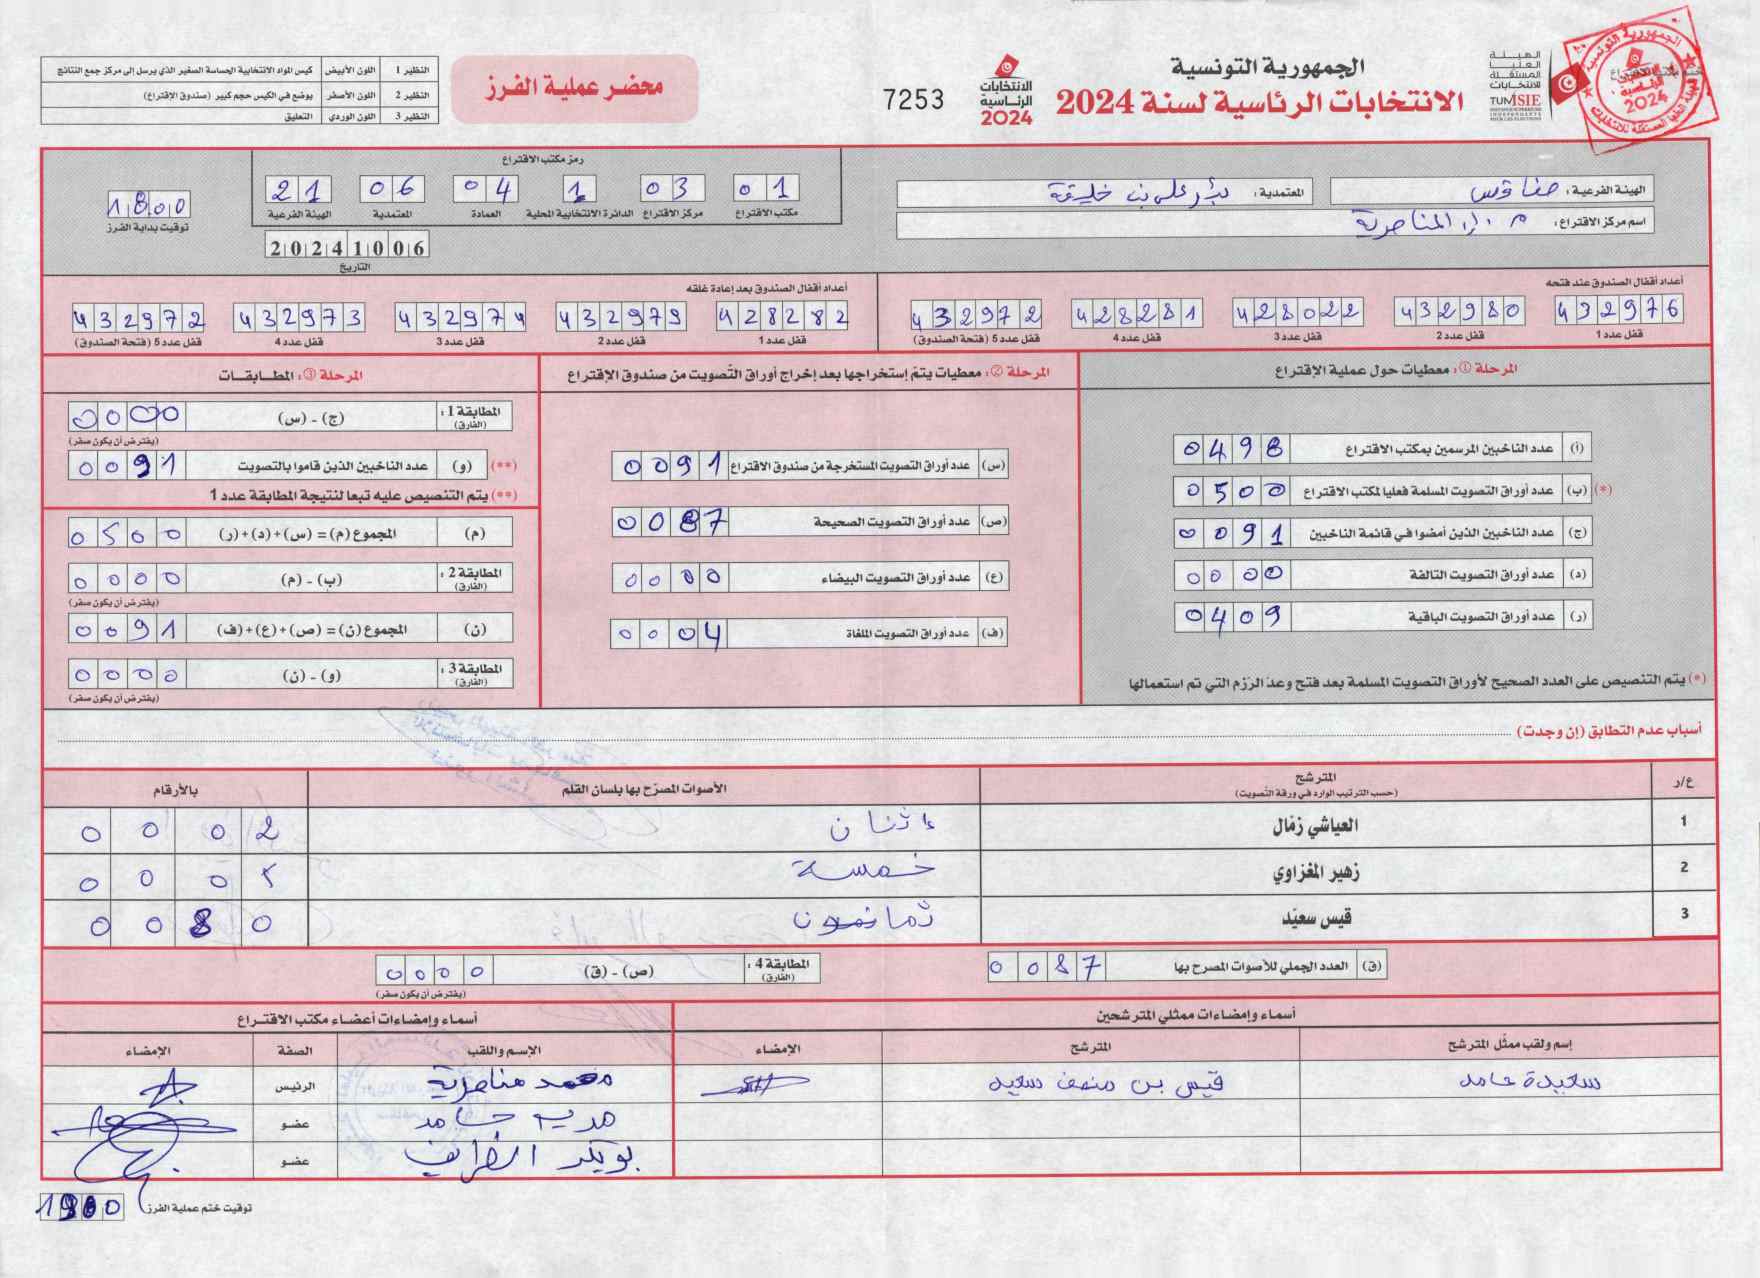 الجمهورية التونسية
الانتخابات الرئاسية لسنة 2024
الهيئة العليا المستقلة للانتخابات
TUNISIE
INSTANCE SUPERIEURE INDEPENDANTE POUR LES ELECTIONS
الانتخابات الرئاسية 2024
7253
محضر عملية الفرز
النظير 1 اللون الأبيض كيس المواد الانتخابية الحساسة الصغير الذي يرسل إلى مركز جمع النتائج
النظير 2 اللون الأصفر يوضع في الكيس حجم كبير (صندوق الإقتراع)
النظير 3 اللون الوردي التعليق
الهيئة الفرعية: صفاقس
المعتمدية: بئر علي بن خليفة
اسم مركز الاقتراع: م. إ. المناصرية
رمز مكتب الاقتراع
01 03 1 04 06 21
مكتب الاقتراع مركز الاقتراع الدائرة الانتخابية المحلية العمادة المعتمدية الهيئة الفرعية
20241006
التاريخ
1800
توقيت بداية الفرز
أعداد أقفال الصندوق عند فتحه
432976 قفل عدد 1
432980 قفل عدد 2
428022 قفل عدد 3
428281 قفل عدد 4
432972 قفل عدد 5 (فتحة الصندوق)
أعداد أقفال الصندوق بعد إعادة غلقه
428282 قفل عدد 1
432979 قفل عدد 2
432974 قفل عدد 3
432973 قفل عدد 4
432972 قفل عدد 5 (فتحة الصندوق)
المرحلة ①: معطيات حول عملية الإقتراع
(أ) عدد الناخبين المرسمين بمكتب الاقتراع 0498
(*) (ب) عدد أوراق التصويت المسلمة فعليا لمكتب الاقتراع 0500
(ج) عدد الناخبين الذين أمضوا في قائمة الناخبين 0091
(د) عدد أوراق التصويت التالفة 0000
(ر) عدد أوراق التصويت الباقية 0409
(*) يتم التنصيص على العدد الصحيح لأوراق التصويت المسلمة بعد فتح وعدّ الرّزم التي تم استعمالها
المرحلة ②: معطيات يتمّ إستخراجها بعد إخراج أوراق التّصويت من صندوق الإقتراع
(س) عدد أوراق التصويت المستخرجة من صندوق الاقتراع 0091
(ص) عدد أوراق التصويت الصحيحة 0087
(ع) عدد أوراق التصويت البيضاء 0000
(ف) عدد أوراق التصويت الملغاة 0004
المرحلة ③: المطــابقــات
المطابقة 1: (الفارق) (ج) - (س) 0000
(يفترض أن يكون صفر)
(**) (و) عدد الناخبين الذين قاموا بالتصويت 0091
(**) يتم التنصيص عليه تبعا لنتيجة المطابقة عدد 1
(م) المجموع (م) = (س)+(د)+(ر) 0500
المطابقة 2: (الفارق) (ب) - (م) 0000
(يفترض أن يكون صفر)
(ن) المجموع (ن) = (ص)+(ع)+(ف) 0091
المطابقة 3: (الفارق) (و) - (ن) 0000
(يفترض أن يكون صفر)
أسباب عدم التطابق (إن وجدت)
ع/ر المترشح (حسب الترتيب الوارد في ورقة التّصويت) الأصوات المصرّح بها بلسان القلم بالأرقام
1 العياشي زمّال إثنان 0002
2 زهير المغزاوي خمسة 0005
3 قيس سعيّد ثمانون 0080
(ق) العدد الجملي للأصوات المصرح بها 0087
المطابقة 4: (الفارق) (ص) - (ق) 0000
(يفترض أن يكون صفر)
أسماء وإمضاءات ممثلي المترشحين
إسم ولقب ممثّل المترشح المترشح الإمضاء
سعيدة عامد قيس بن منصف سعيد
أسماء وإمضاءات أعضاء مكتب الاقتــراع
الإسم واللقب الصفة الإمضاء
محمد مناصرية الرئيس
مديه حامد عضو
بوبكر الظرايف عضو
توقيت ختم عملية الفرز 1900